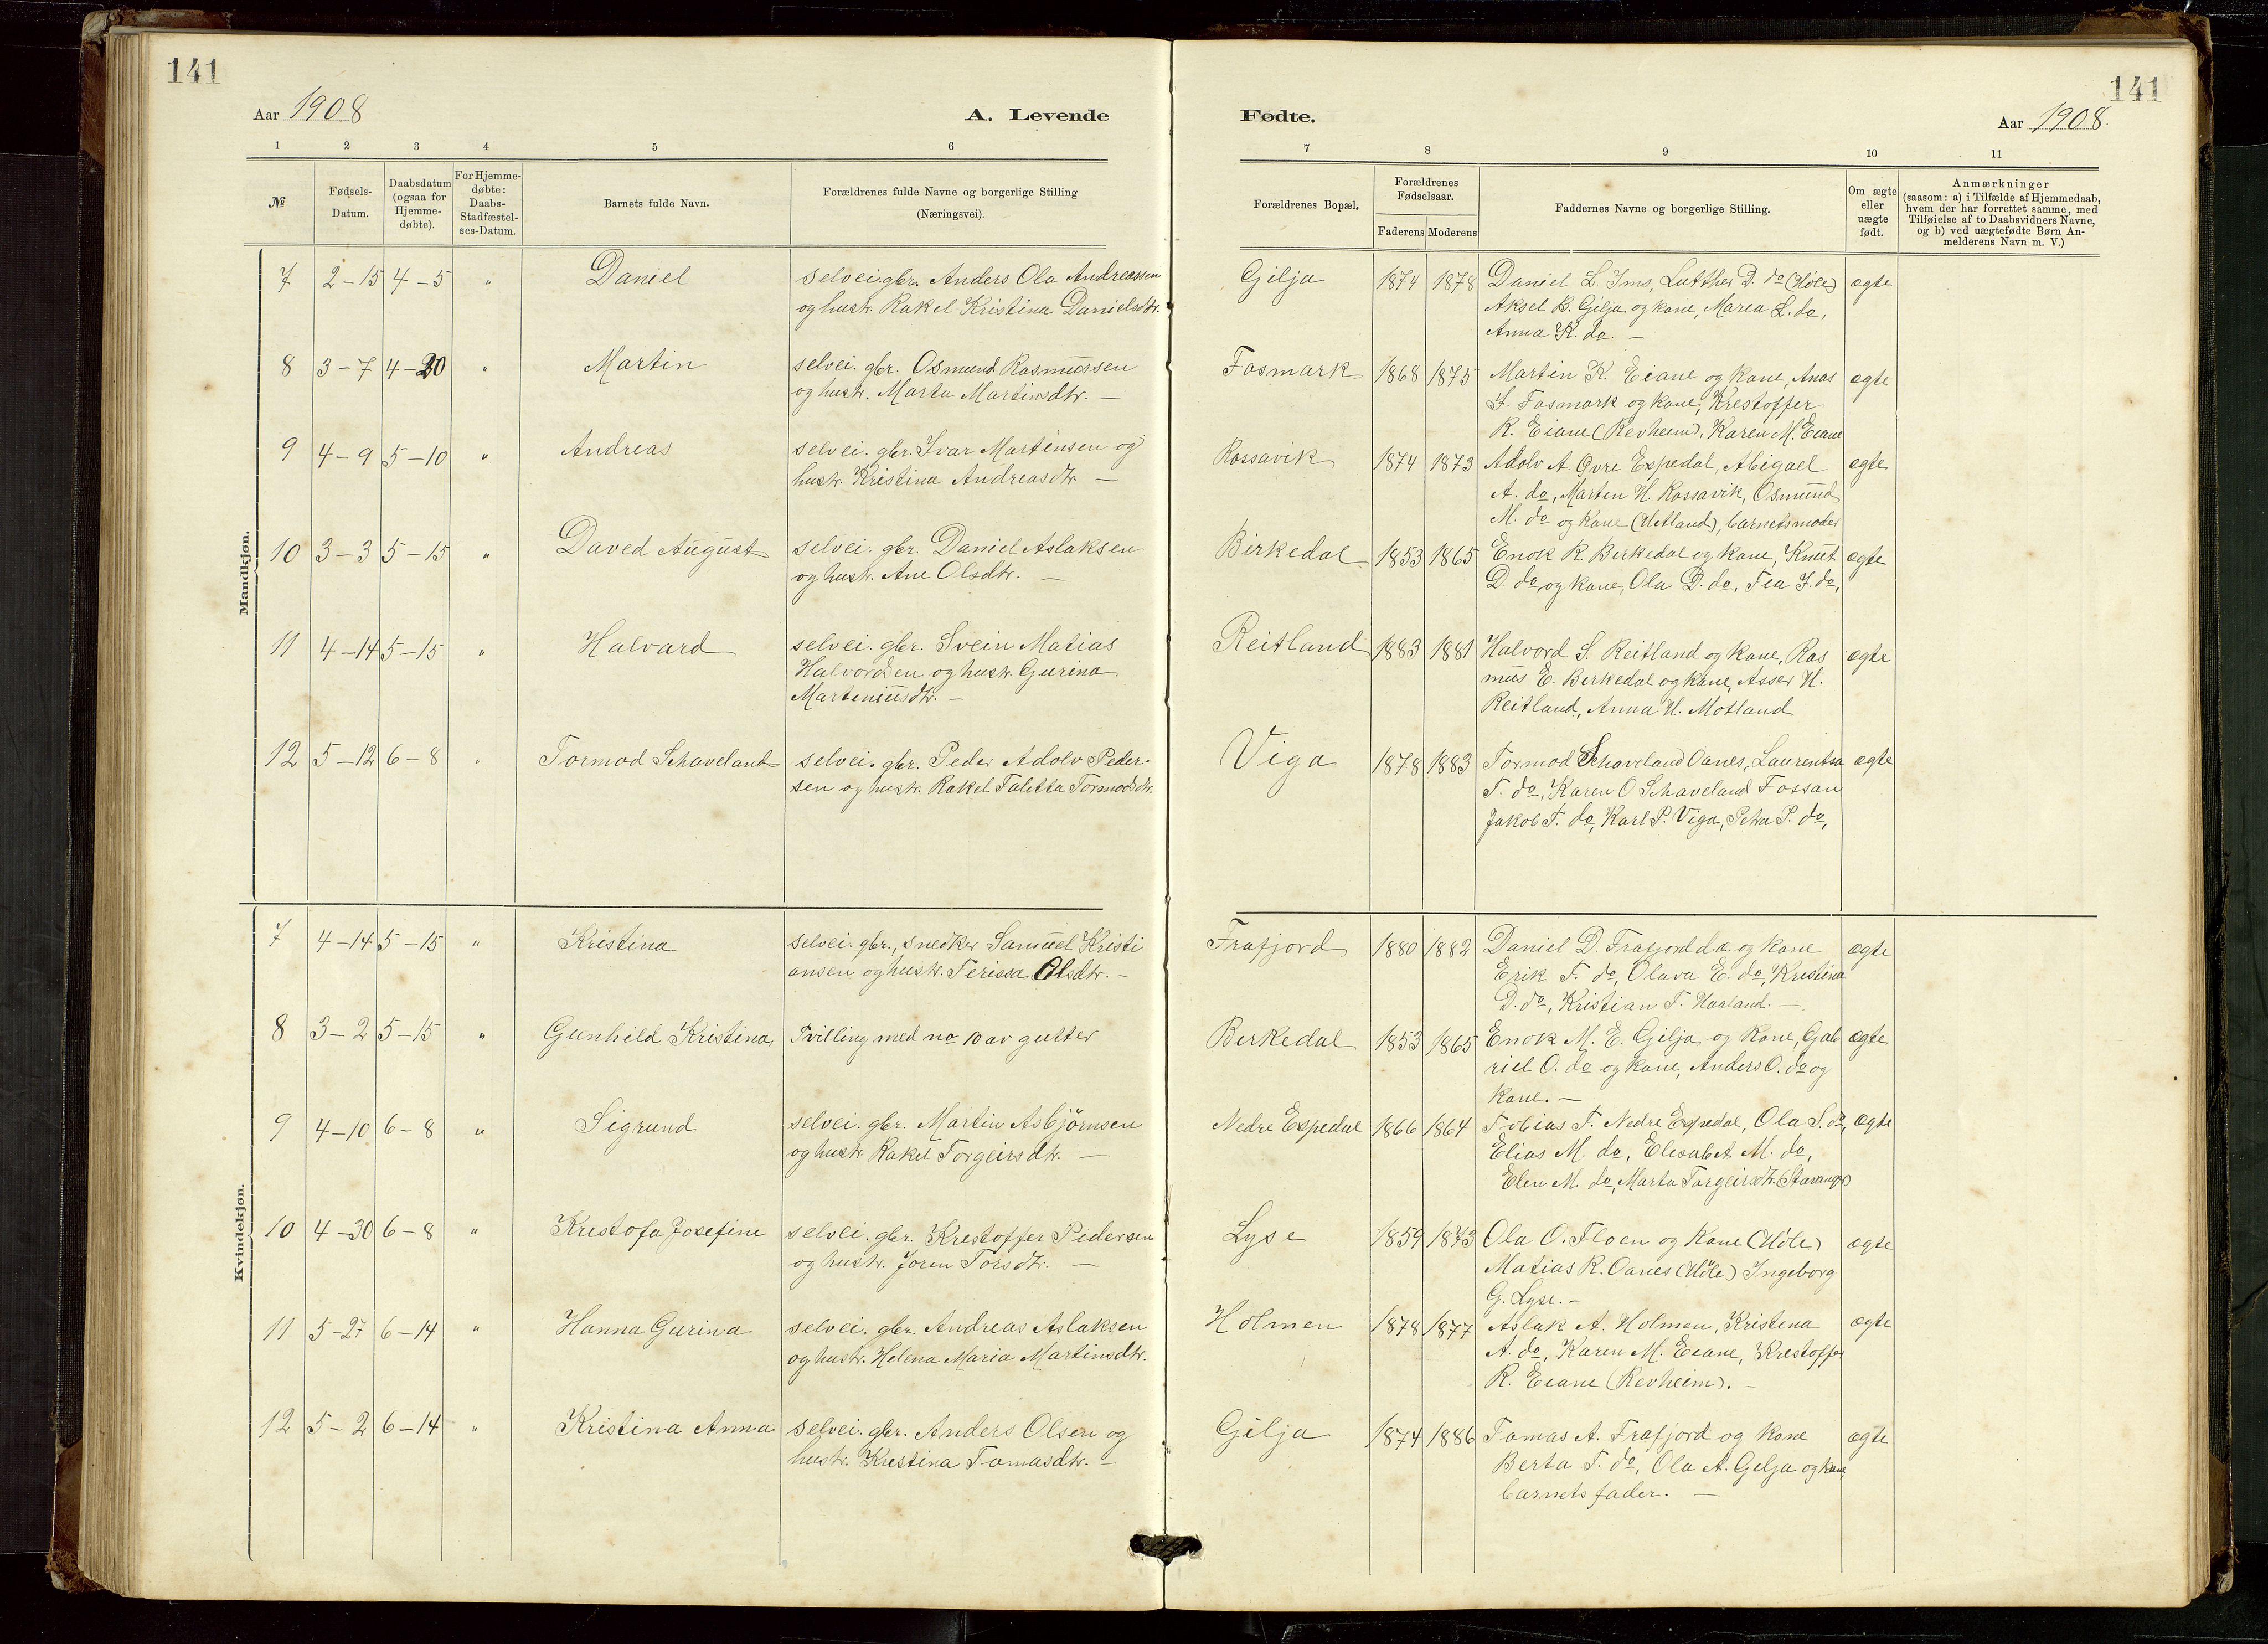 141
141
Aar 1908
A. Levende
Fødte.
Aar 1908.
1 2 3 4 5 6
7 8 9 10 11
№
Fødsels-
Datum.
Daabsdatum
(ogsaa for
Hjemme-
døbte).
For Hjemme-
døbte:
Daabs-
Stadfæstel-
ses-Datum.
Barnets fulde Navn.
Forældrenes fulde Navne og borgerlige Stilling
(Næringsvei).
Forældrenes Bopæl.
Forældrenes
Fødselsaar.
Faderens Moderens
Faddernes Navne og borgerlige Stilling.
Om ægte
eller
uægte
født.
Anmærkninger
(saasom: a) i Tilfælde af Hjemmedaab,
hvem der har forrettet samme, med
Tilføielse af to Daabsvidners Navne,
og b) ved uægtefødte Børn An-
melderens Navn m. V.)
Mandkjøn.
7 2-15 4-5 " Daniel selvei.gbr. Anders Ola Andreassen Gilja 1874 1878 Daniel L. Ims, Lutther D. do (Høle) ægte
og hustr. Rakel Kristina Danielsdtr. Aksel B. Gilja og kone, Marea L. do,
Anna K. do. —
8 3-7 4-20 " Martin selvei. gbr. Osmund Rasmussen Fosmark 1868 1875 Martin K. Eiane og kone, Anas ægte
og hustr. Marta Martinsdtr. — S. Fosmark og kone, Krestoffer
R. Eiane (Revheim), Karen M. Eiane
9 4-9 5-10 " Andreas selvei. gbr. Ivar Martensen og Rossavik 1874 1873 Adolv A. Øvre Espedal, Abigael ægte
hustr. Kristina Andreasdtr. — A. do, Marten H. Rossavik, Osmund
M. do og kone (Hetland), barnets moder
10 3-3 5-15 " Daved August selvei. gbr. Daniel Aslaksen Birkedal 1853 1865 Enok R. Berkedal og kone, Knut ægte
og hustr. Ane Olsdtr. — D. do og kone, Ola D. do, Tea J. do,
11 4-14 5-15 " Halvard selvei. gbr. Svein Matias Reitland 1883 1881 Halvord S. Reitland og kone, Ras ægte
Halvordsen og hustr. Gurina mus E. Berkedal og kone, Asser H.
Marteniusdtr. — Reitland, Anna H. Motland
12 5-12 6-8 " Tormod Schaveland selvei. gbr. Peder Adolv Peder- Viga 1878 1883 Tormod Schaveland Oanes, Laurentsa ægte
sen og hustr. Rakel Taletta Tormodsdtr. T. do, Karen O Schaveland Fossan
Jakob T. do, Karl P. Viga, Petra P. do,
Kvindekjøn.
7 4-14 5-15 " Kristina selvei. gbr., snedker Samuel Kristi Frafjord 1880 1882 Daniel D. Frafjord d.æ. og kone ægte
ansen og hustr. Terissa Olsdtr. — Erik T. do, Olava E. do, Kristina
D. do, Kristian T. Haaland. —
8 3-2 5-15 " Gunhild Kristina Tvilling med no 10 av gutter Berkedal 1853 1865 Enok M. E. Gilja og kone, Gab ægte
riel O. do og kone, Anders O. do og
kone. —
9 4-10 6-8 " Sigrund selvei. gbr. Martin Asbjørnsen Nedre Espedal 1866 1864 Tobias T. Nedre Espedal, Ola S. do, ægte
og hustr. Rakel Torgeirsdtr. — Elias M. do, Elesabet M. do,
Elen M. do, Marta Torgeirsdtr. (Stavanger)
10 4-30 6-8 " Krestofa Josefine selvei. gbr. Krestoffer Pedersen Lyse 1859 1873 Ola O. Floen og kone (Høle) ægte
og hustr. Joren Torsdtr. — Matias R. Oanes (Høle) Ingeborg
G. Lyse. —
11 5-27 6-14 " Hanna Gurina selvei. gbr. Andreas Aslaksen Holmen 1878 1877 Aslak A. Holmen, Kristena ægte
og hustr. Helena Maria Martinsdtr. A. do, Karen M. Eiane, Krestoffer
R. Eiane (Revheim). —
12 5-2 6-14 " Kristina Anna selvei. gbr. Anders Olsen og Gilja 1874 1886 Tomas A. Frafjord og kone ægte
hustr. Krestina Tomasdtr. — Berta T. do, Ola A. Gilja og kone,
barnets fader. —